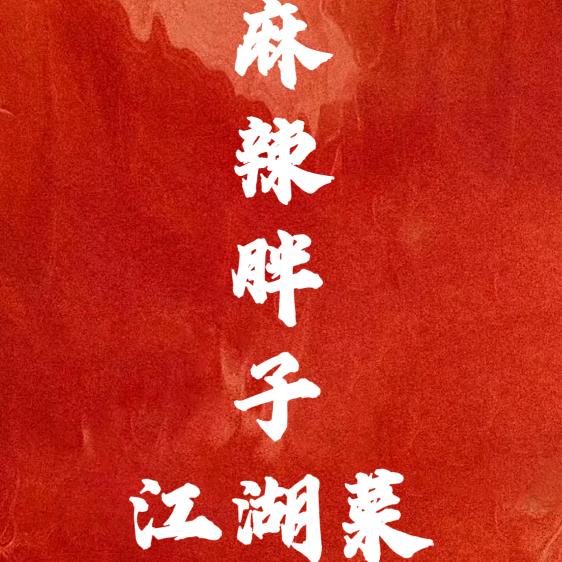 麻辣胖子
江湖菜